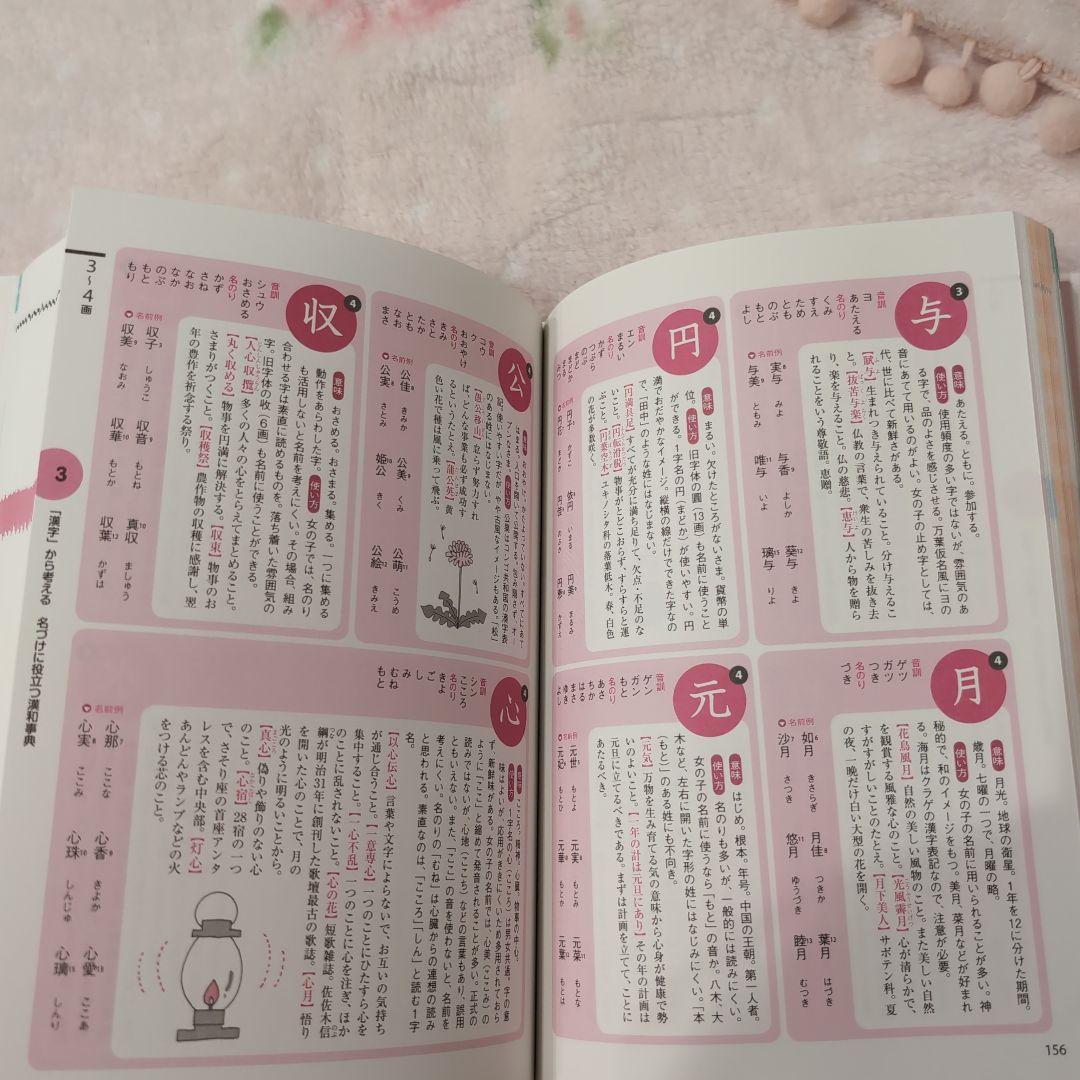 与
3
音訓
ヨ
あたえる
名のり
くみ
すえ
とも
のぶ
もと
よし
意味 あたえる。ともに。参加する。
使い方 使用頻度の多い字ではないが、雰囲気のあ
る字で、品のよさを感じさせる。万葉仮名風にヨの
音にあてて用いるのがよい。女の子の止め字としては、
代、世に比べて新鮮さがある。
【賦与】生まれつき与えられていること。分け与えるこ
と。【抜苦与楽】仏教の言葉で、衆生の苦しみを抜き去
り、楽を与えること。仏の慈悲。【恵与】人から物を贈ら
れることをいう尊敬語。恵贈。
名前例
実与 みよ
与香 よしか
葵与 きよ
与美 ともみ
唯与 いよ
璃与 りよ
円
4
音訓
エン
まるい
名のり
かず
つぶら
のぶ
まど
まどか
まる
みつ
意味 まるい。欠けたところがないさま。貨幣の単
位。使い方 旧字体の圓（13画）も名前に使うこと
ができる。1字名の円（まどか）が使いやすい。円
満でおだやかなイメージ。縦横の線だけでできた字なの
で、「田中」のような姓にはなじまない。
【円満具足】すべてが充分に満ち足りて、欠点・不足のな
いこと。【円転滑脱】物事がとどこおらず、すらすらと運
ぶこと。【円葉空木】ユキノシタ科の落葉低木。春、白色
の花が多数咲く。
名前例
円子
依円
円美 まるみ
円花
円佳
円香
月
4
音訓
ゲツ
ガツ
つき
名のり
づき
意味 月光。地球の衛星。1年を12に分けた期間。
歳月。七曜の一つで、月曜の略。
使い方 女の子の名前に用いられることが多い。神
秘的で、和のイメージをもつ。美月、菜月などが好まれ
る。海月はクラゲの漢字表記なので、注意が必要。
【花鳥風月】自然の美しい風物のこと。また美しい自然
を観賞する風雅な心のこと。【光風霽月】心が清らかで、
すがすがしいことのたとえ。【月下美人】サボテン科。夏
の夜、一晩だけ白い大型の花を開く。
名前例
如月 きさらぎ
月佳 つきか
葉月 はづき
沙月 さつき
悠月 ゆうづき
睦月 むつき
元
4
音訓
ゲン
ガン
もと
名のり
あさ
ちか
はる
まさ
ゆき
よし
意味 はじめ。根本。年号。中国の王朝。第一人者。
使い方 名のりも多いが、一般的には読みにくい。
女の子の名前に使うなら「もと」の音か。八木、大
木など、左右に開いた字形の姓にはなじみにくい。「本
（もと）」のある姓にも不向き。
【元気】万物を生み育てる気の意味から心身が健康で勢
いのよいこと。【一年の計は元旦にあり】その年の計画は
元旦に立てるべきである。まずは計画を立てて、ことに
あたるべき。
名前例
元世
元実 もとみ
元菜 もとな
元妃 もとひ
元華 もとか
元葉 もとは
156
3〜4画
公
4
音訓
コウ
ク
おおやけ
名のり
きみ
さと
たか
とも
なお
まさ
【愚公移山】怠らず努力すれ
ば、どんな事業も必ず成功す
るというたとえ。【蒲公英】黄
色い花で種は風に乗って飛ぶ。
名前例
公佳 きみか
公美 くみ
公萌 こうめ
公実 まさみ
姫公 きく
公絵 きみえ
収
4
音訓
シュウ
おさめる
名のり
かず
さね
なお
なか
のぶ
もと
もり
意味 おさめる。おさまる。集める。一つに集める
動作をあらわした字。使い方 女の子では、名のり
も活用しないと名前を考えにくい。その場合、組み
合わせる字は素直に読めるものを。落ち着いた雰囲気の
字。旧字体の收（6画）も名前に使うことができる。
【人心収攬】多くの人々の心をとらえてまとめること。
【丸く収める】物事を円満に解決する。【収束】物事のお
さまりがつくこと。【収穫祭】農作物の収穫に感謝し、翌
年の豊作を祈念する祭り。
名前例
収子 しゅうこ
収音 もとね
真収 ましゅう
収美 なおみ
収華 もとか
収葉 かずは
心
4
音訓
シン
こころ
名のり
きよ
ごし
み
むね
もと
【以心伝心】言葉や文字によらないで、お互いの気持ち
が通じ合うこと。【一意専心】一つのことにひたすら心を
集中すること。【一心不乱】一つのことに心を注ぎ、ほか
のことに乱されないこと。【心の花】短歌雑誌。佐佐木信
綱が明治31年に創刊した歌壇最古の歌誌。【心月】悟り
を開いた心のことで、月の
光のように明るいことから。
【真心】偽りや飾りのない心
のこと。【心宿】28宿の一つ
で、さそり座の首座アンタ
レスを含む中央部。【灯心】
あんどんやランプなどの火
をつける芯のこと。
名前例
心那 ここな
心香 きよか
心愛 ここあ
心実 ここみ
心珠 しんじゅ
心璃 しんり
3
「漢字」から考える 名づけに役立つ漢和事典